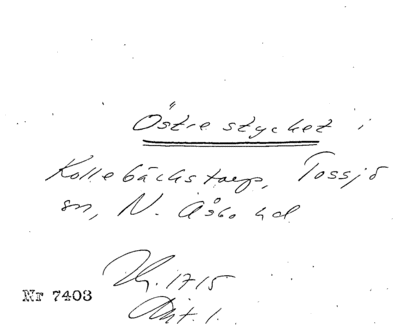 Östre stycket i
Kollebäckstorp, Tossjö
sn, N. Åsbo hd
1715
Nr 7403